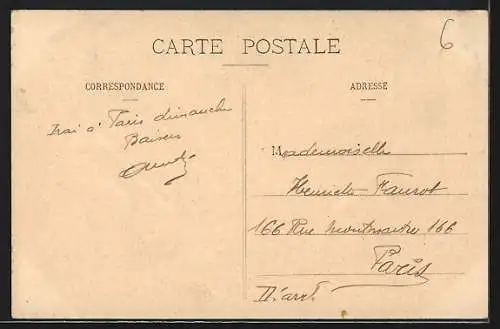 6
CARTE POSTALE
CORRESPONDANCE
ADRESSE
Irai à Paris dimanche
Baisers
Mademoiselle
Henriette Faurot
166 Rue Montmartre 166
Paris
II arrt